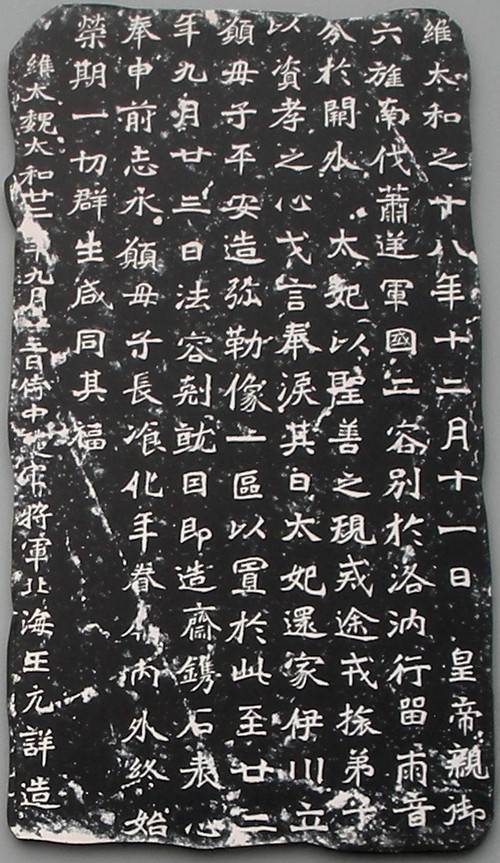 維太和之十八年十二月十一日皇帝親御
六旌南伐蕭逆軍國二容別於洛汭行留兩音
分於闕外太妃以聖善之規戒途戎旅弟子
以資孝之心戈言奉淚其日太妃還家伊川立
願母子平安造弥勒像一區以置於此至廿二
年九月廿三日法容剋就因即造齋鐫石表心
奉申前志永願母子長飡化年眷内外終始
榮期一切群生咸同其福
維太魏太和廿二年九月三日侍中軍將軍北海王元詳造